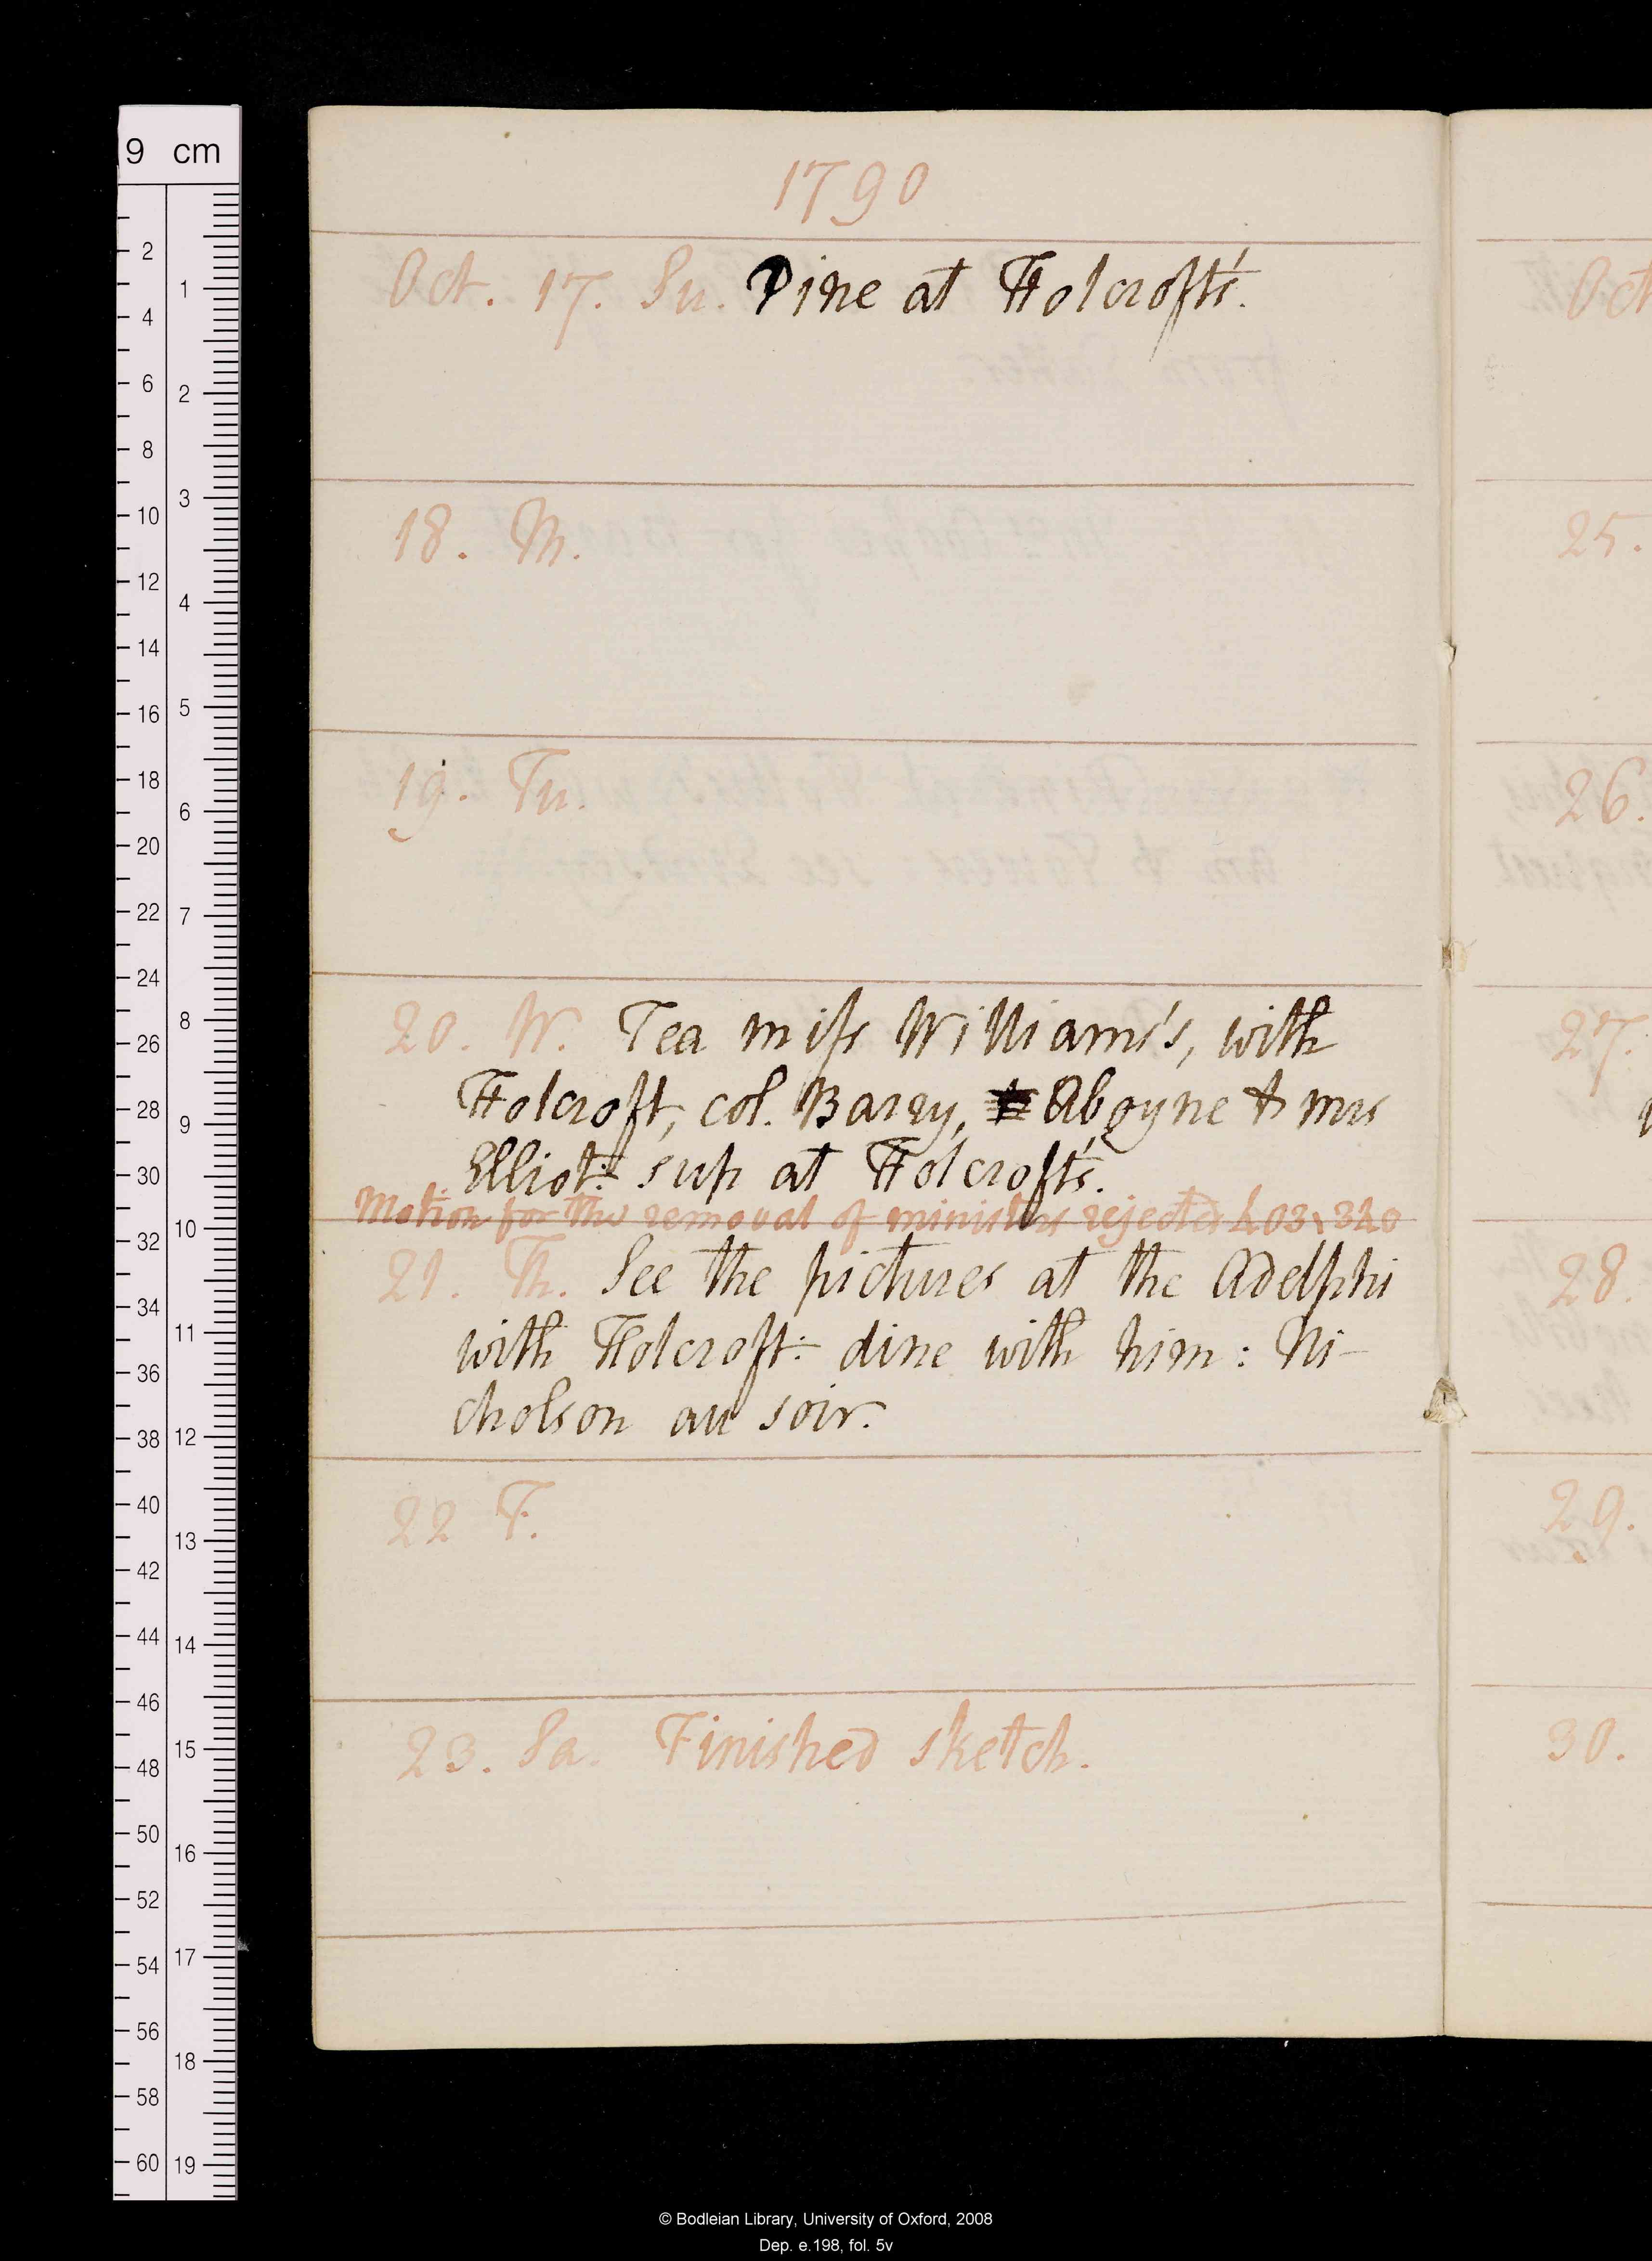 1790
Oct. 17. Su. Dine at Holcroft's.
18. M.
19. Tu.
20. W. Tea miss Williams's, with
Holcroft, col. Barry, Aboyne & mrs
Elliot: sup at Holcroft's.
Motion for the removal of ministers rejected 403, 340
21. Th. See the pictures at the Adelphi
with Holcroft: dine with him: Ni-
cholson au soir.
22 F.
23. Sa. Finished sketch.
Oct
25.
26.
27.
28.
29.
30.
9 cm
© Bodleian Library, University of Oxford, 2008
Dep. e.198, fol. 5v